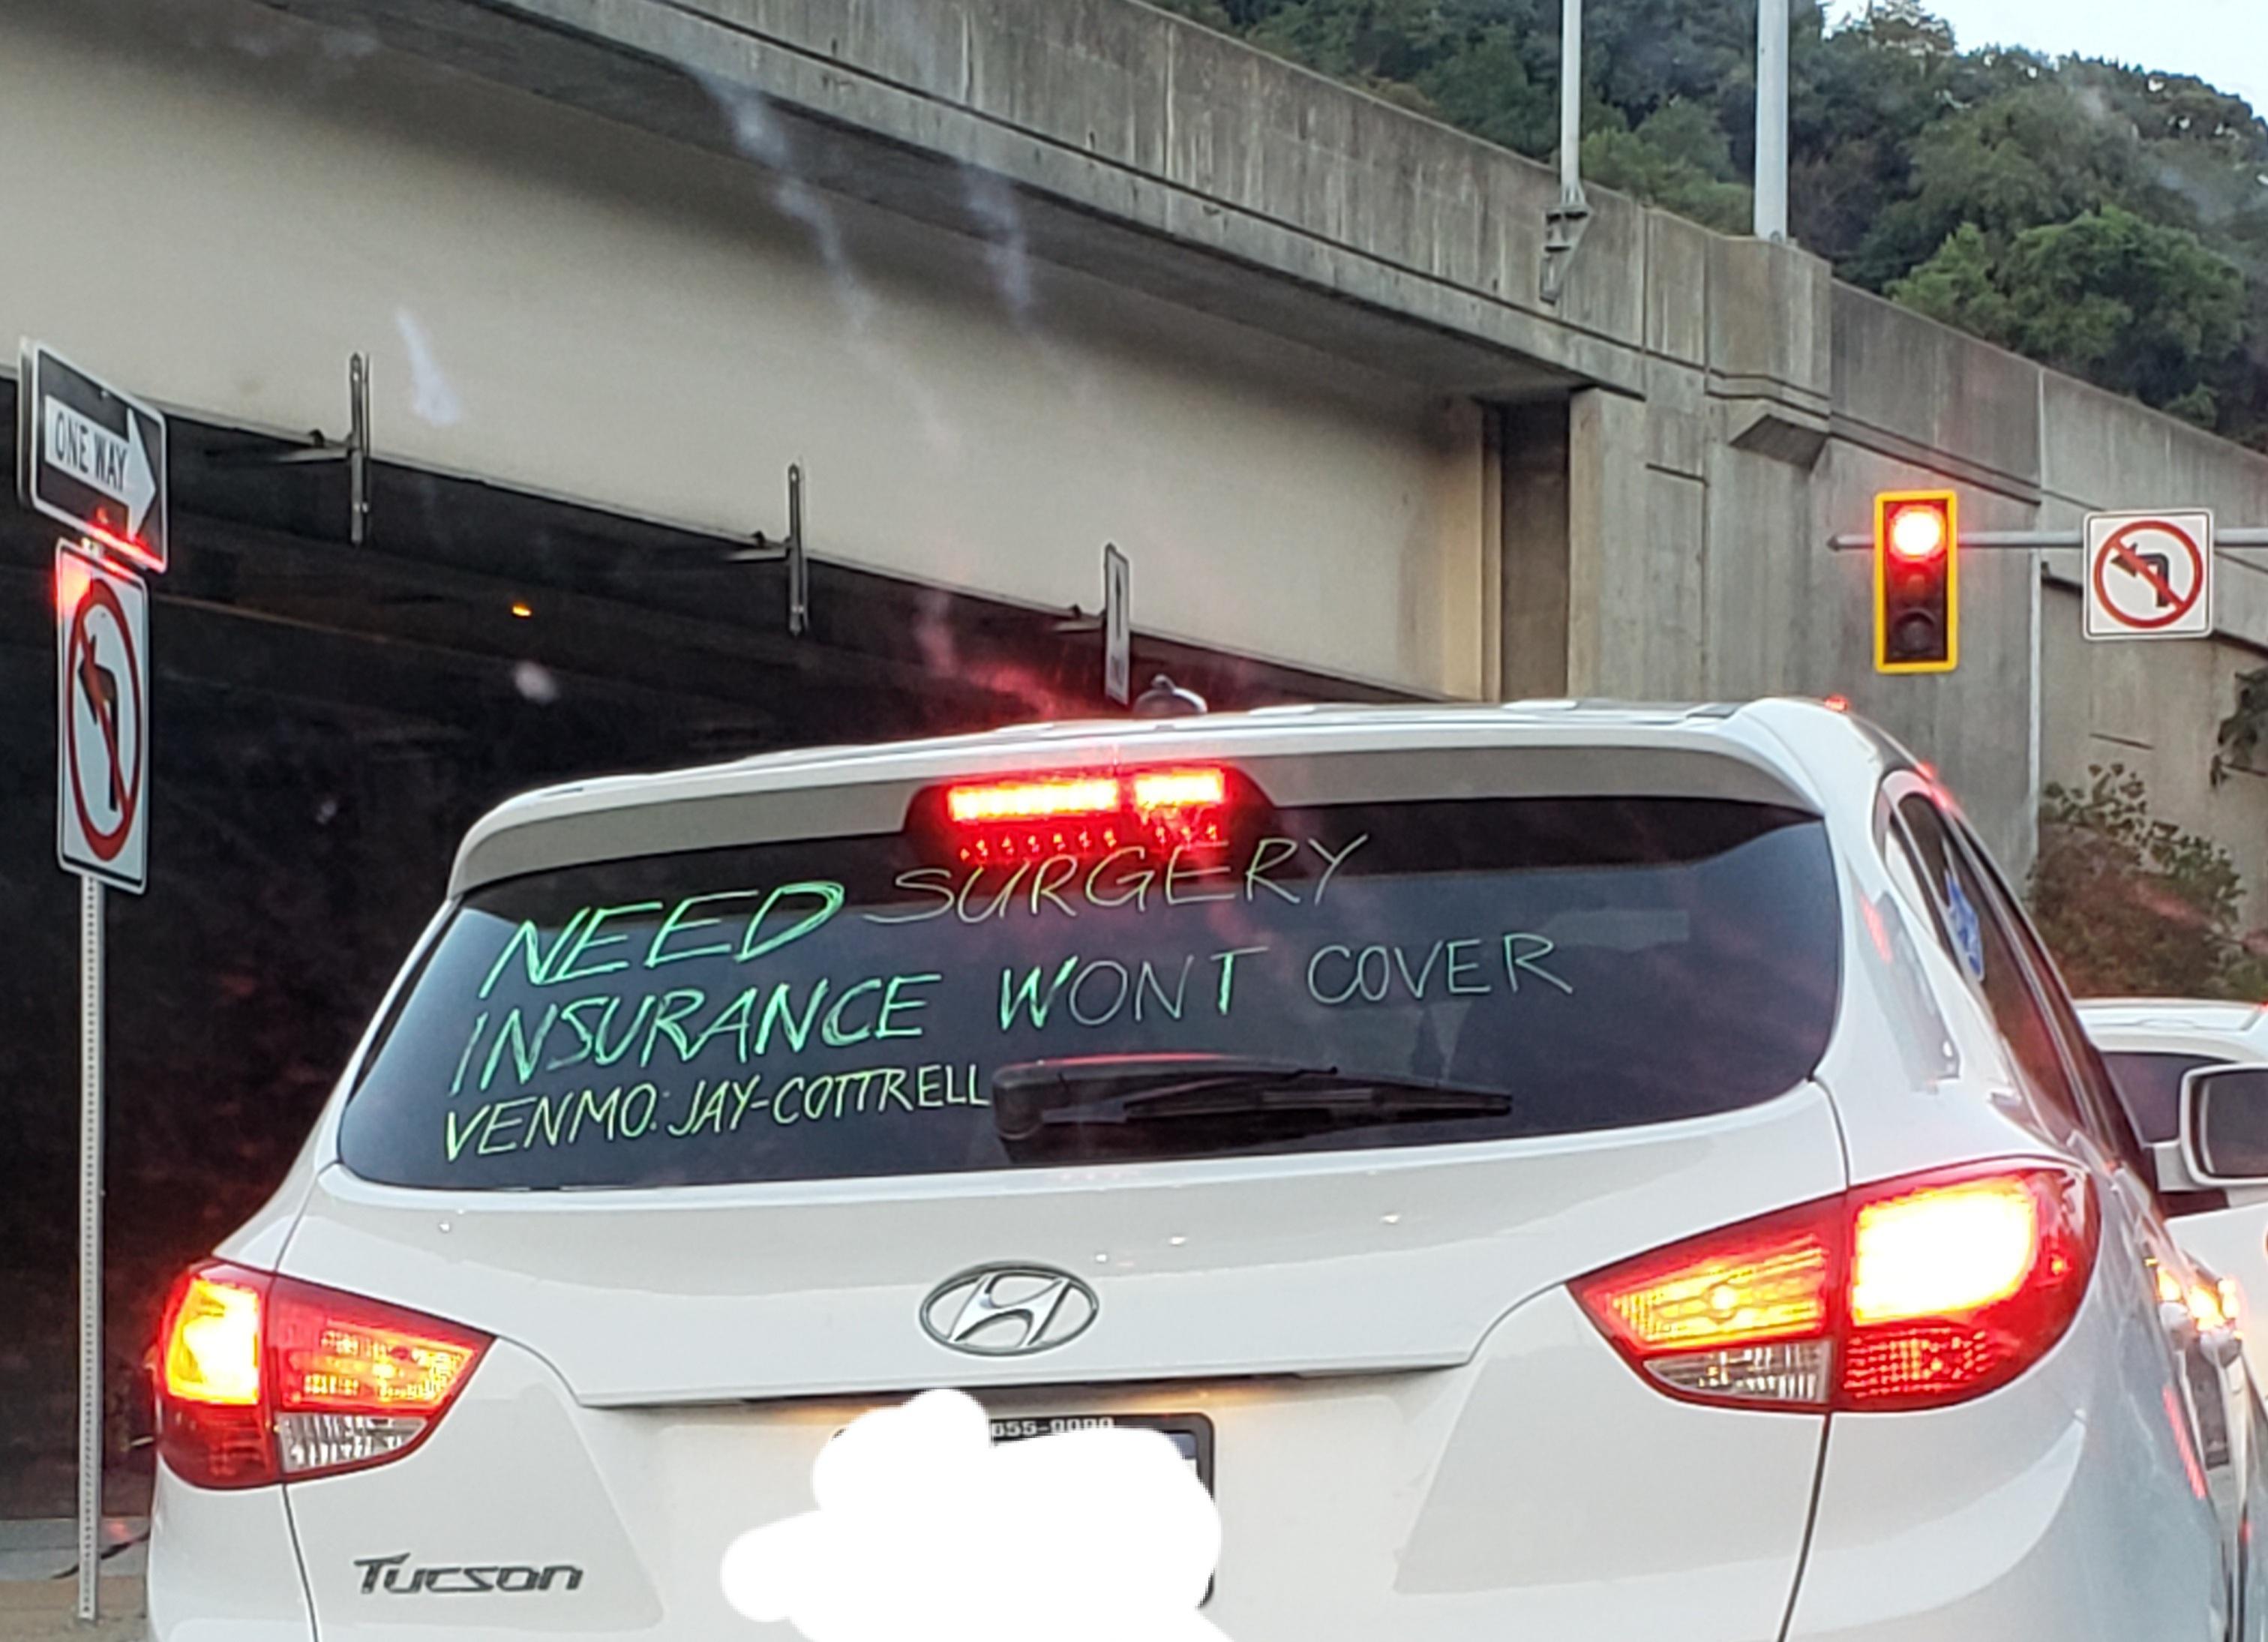 ONE WAY
NEED SURGERY
INSURANCE WONT COVER
VENMO: JAY-COTTRELL
Tucson